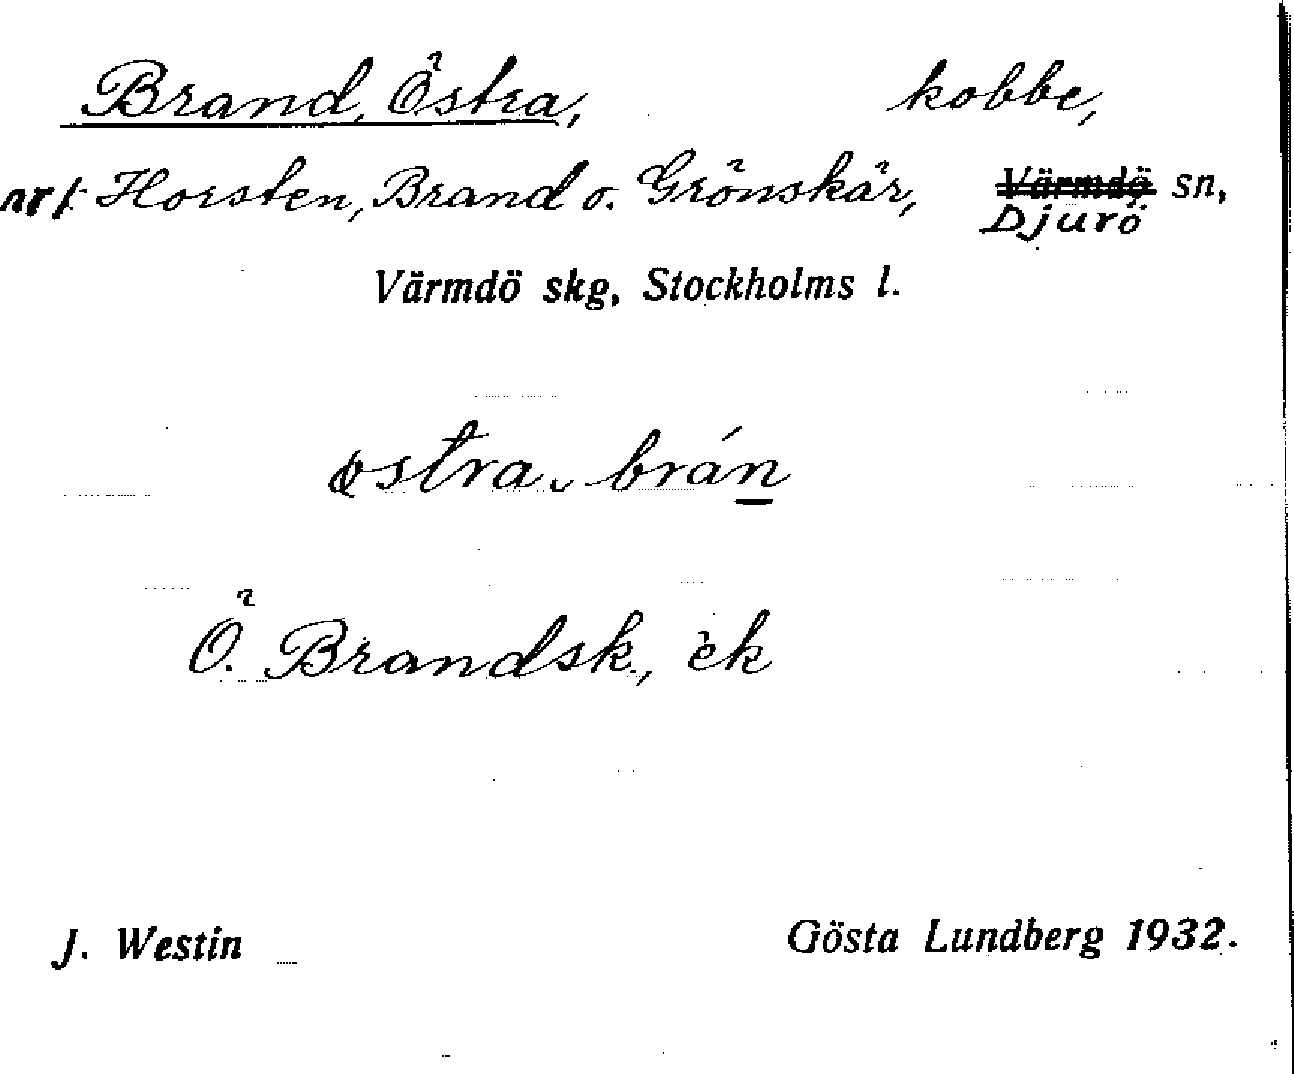 Brand, Östra, kobbe,
nr 1. Horsten, Brand o. Grönskär, Värmdö sn,
Djurö
Värmdö skg, Stockholms l.
østra brán
Ö. Brandsk., ek
J. Westin Gösta Lundberg 1932.